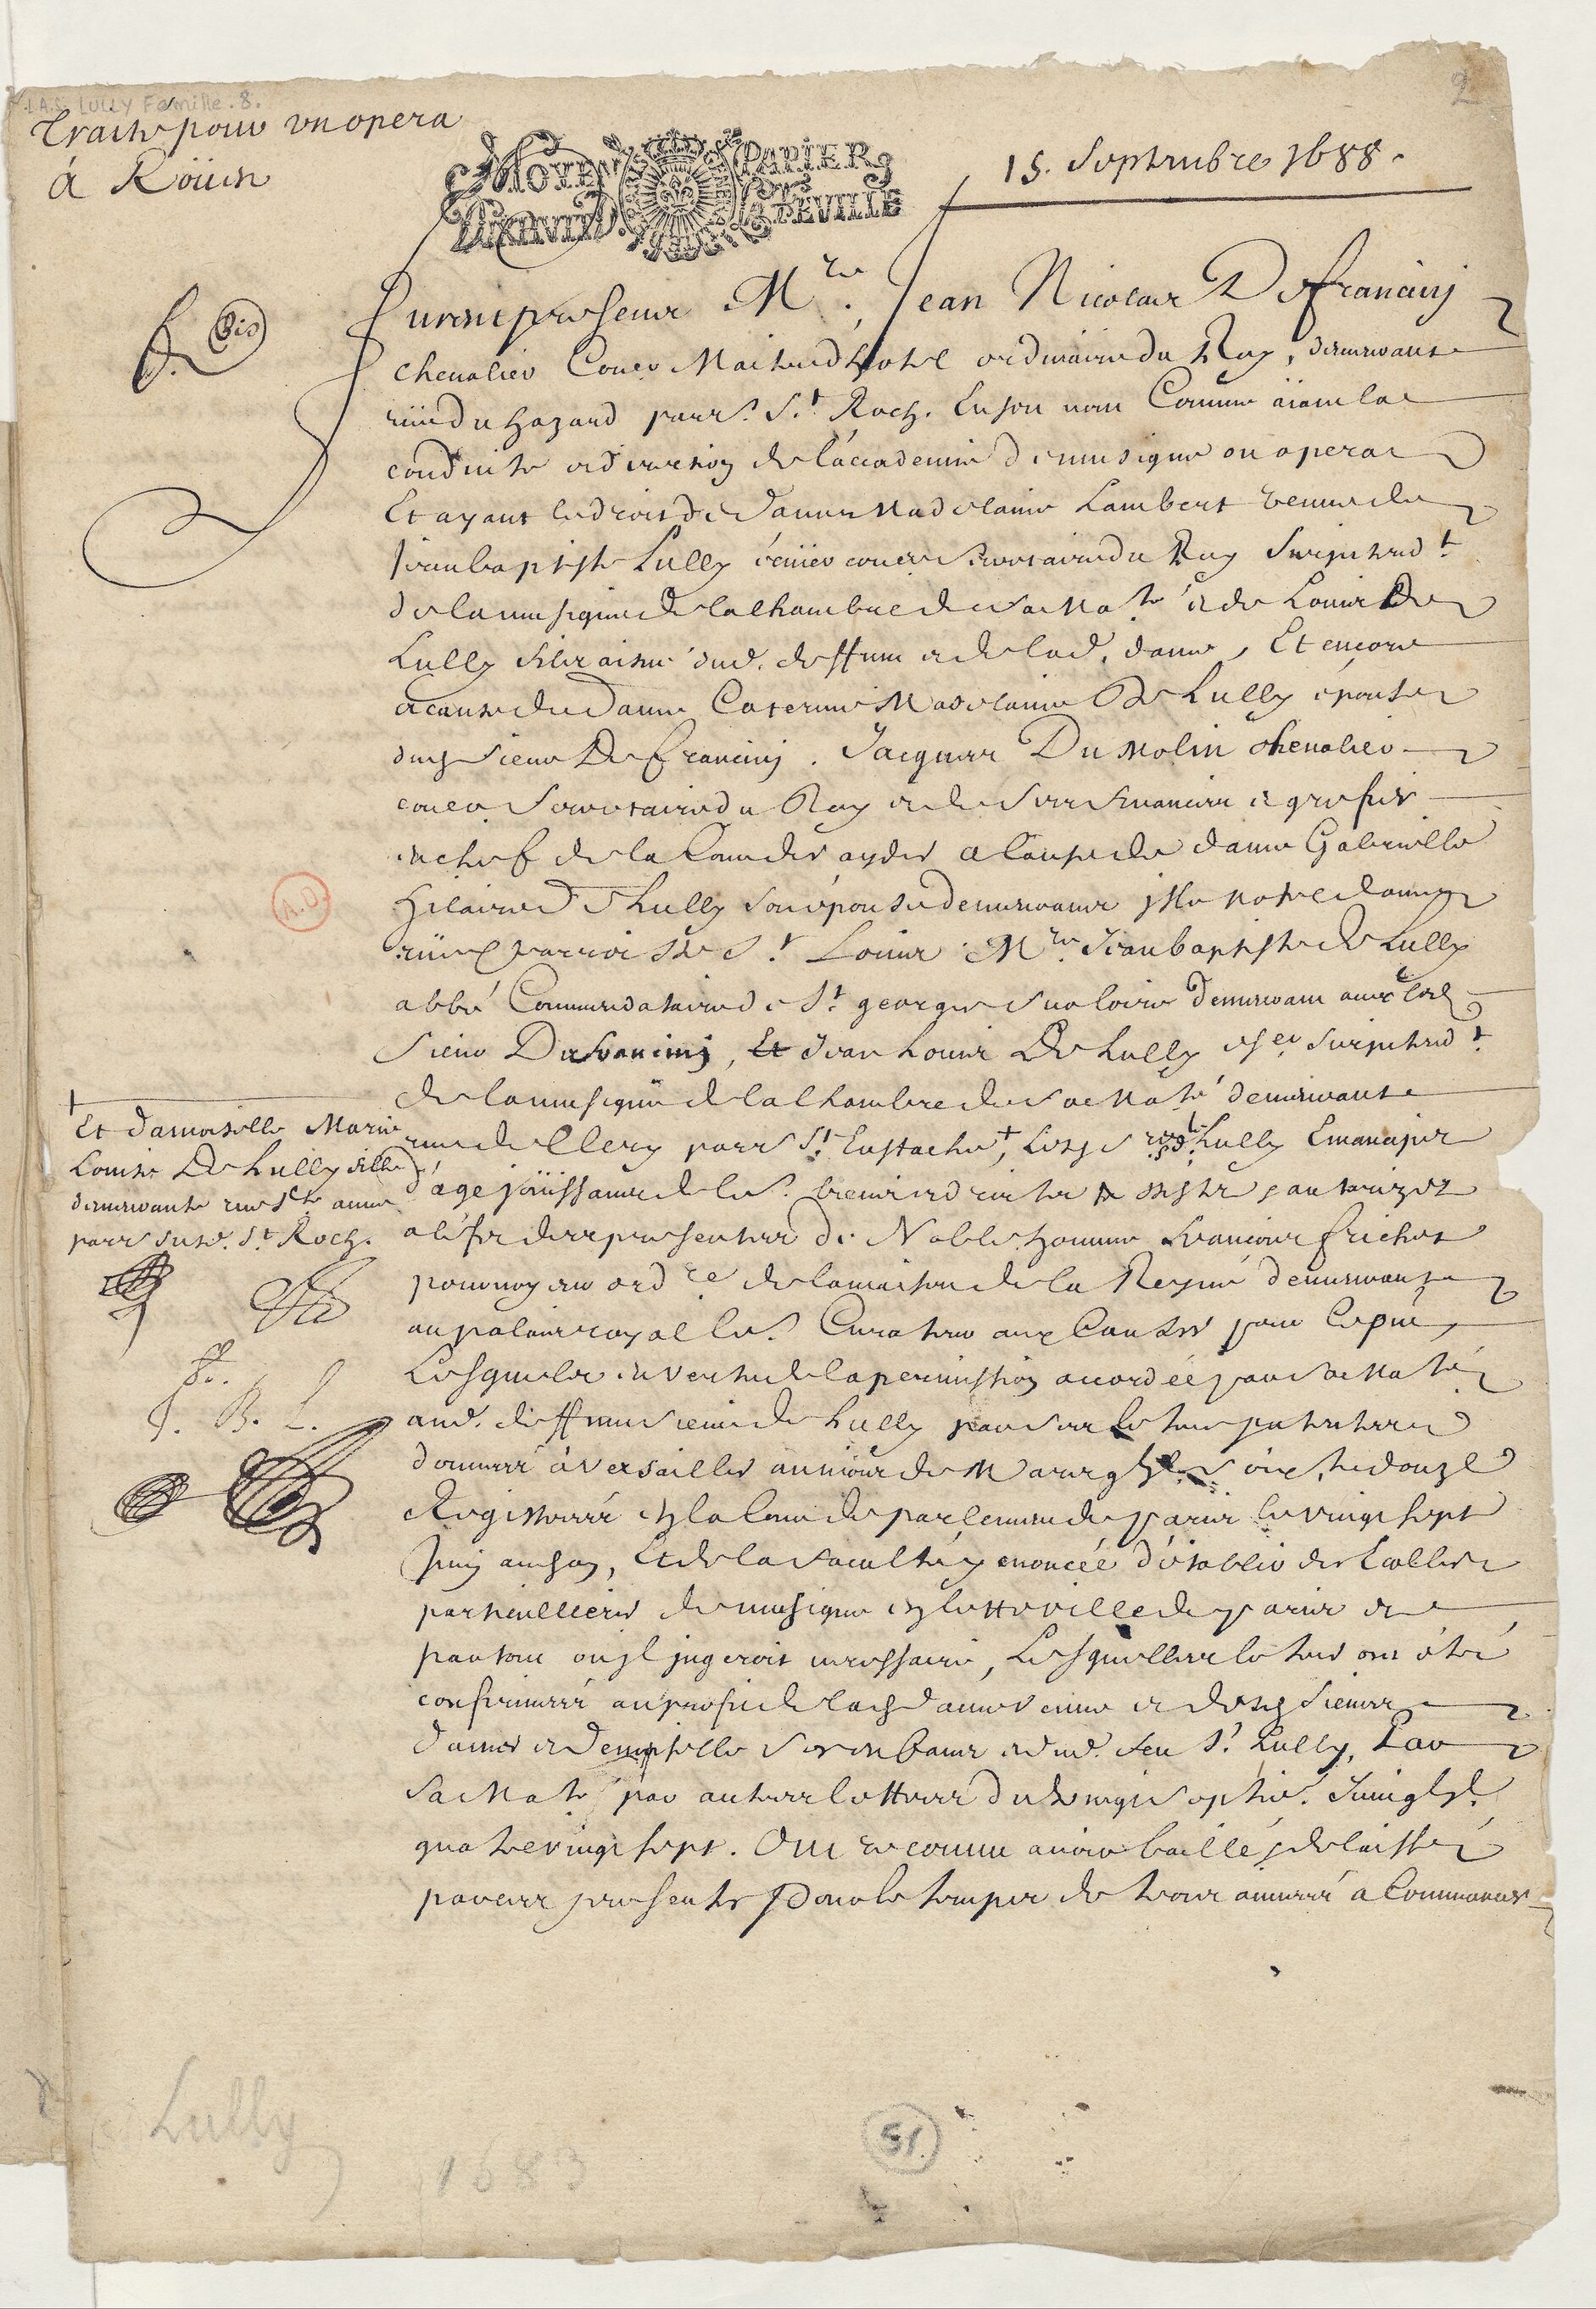 L.A.S. LULLY Famille. 8.
2
Traité pour un opera
à Roüen
MOYEN PAPIER
15. Septembre 1688.
Bis
Furent presens Mre. Jean Nicolas De francinj
chevalier Coner Maitre dhotel ordinaire du Roy, demeurant
rüe du hazard parr. St. Roch. En son nom Comme aiant la
conduite et direction de l'accademie de musique ou opera
Et ayant le droit de dame Madelaine Lambert veuve de
Jean baptiste Lully écüier coner Secretaire du Roy Surjntendt
de la musique de la chambre de sa Maté et de Louis De
Lully fils aisné dud. deffunt et de lad. dame, Et encore
a cause de dame Caterine Madelaine De Lully épouse
dud sieur De francinj. Jacques Du Molin chevalier
coner Secretaire du Roy et de ses finances et greffier
en chef de la Cour des aydes a cause de dame Gabrielle
hilaire De Lully son épouse demeurant jsle notre dame
rüe parroisse St. Louis Mre. Jean baptiste de Lully
abbé Commendataire de St. georges sur loire demeurant avec led
Sieur De francinj, Et Jean Louis De Lully eser Surjntendt
de la musique de la chambre de sa Maté demeurant
rue de Clery parr St Eustache +, Lesd Srs de Lully Emancipez
d'age joüissant de leurs biens et droits assistez et autorizez
a l'effet des presentes de Noble homme francois frichet
pourvoyeur ordre de la maison de la Reyne demeurant
au palais royal leur Curateur aux Causes pour ce pnt,
Lesquels en vertu de la permission accordée par sa Maté
aud. deffunt sieur de Lully par ses lettres patentes
données à Versailles au mois de Mars gbjc soixte douze
Registrées en la Cour de parlement de paris le vingt sept
Juin audt an, Et de la faculté y enoncée d'établir des Ecolles
particullieres de musique en cette ville de paris et
partout ou jl jugeroit necessaire, Lesquelles lettres ont été
confirmées au profit de lad dame veuve et desd sieurs
dames et demoiselle ses enfans et dud. feu Sr. Lully, Par
sa Maté par autres lettres du vingt septie. Juin gbjc
quatrevingt sept. Ont reconnu avoir baillé et delaissé
par ces presentes pour le temps de trois années a Commencer
+
Et damoiselle Marie
Louise De Lully fille
demeurante rue Ste anne
parr susd. St Roch.
J. B. L.
A.D.
Lully
1683
51